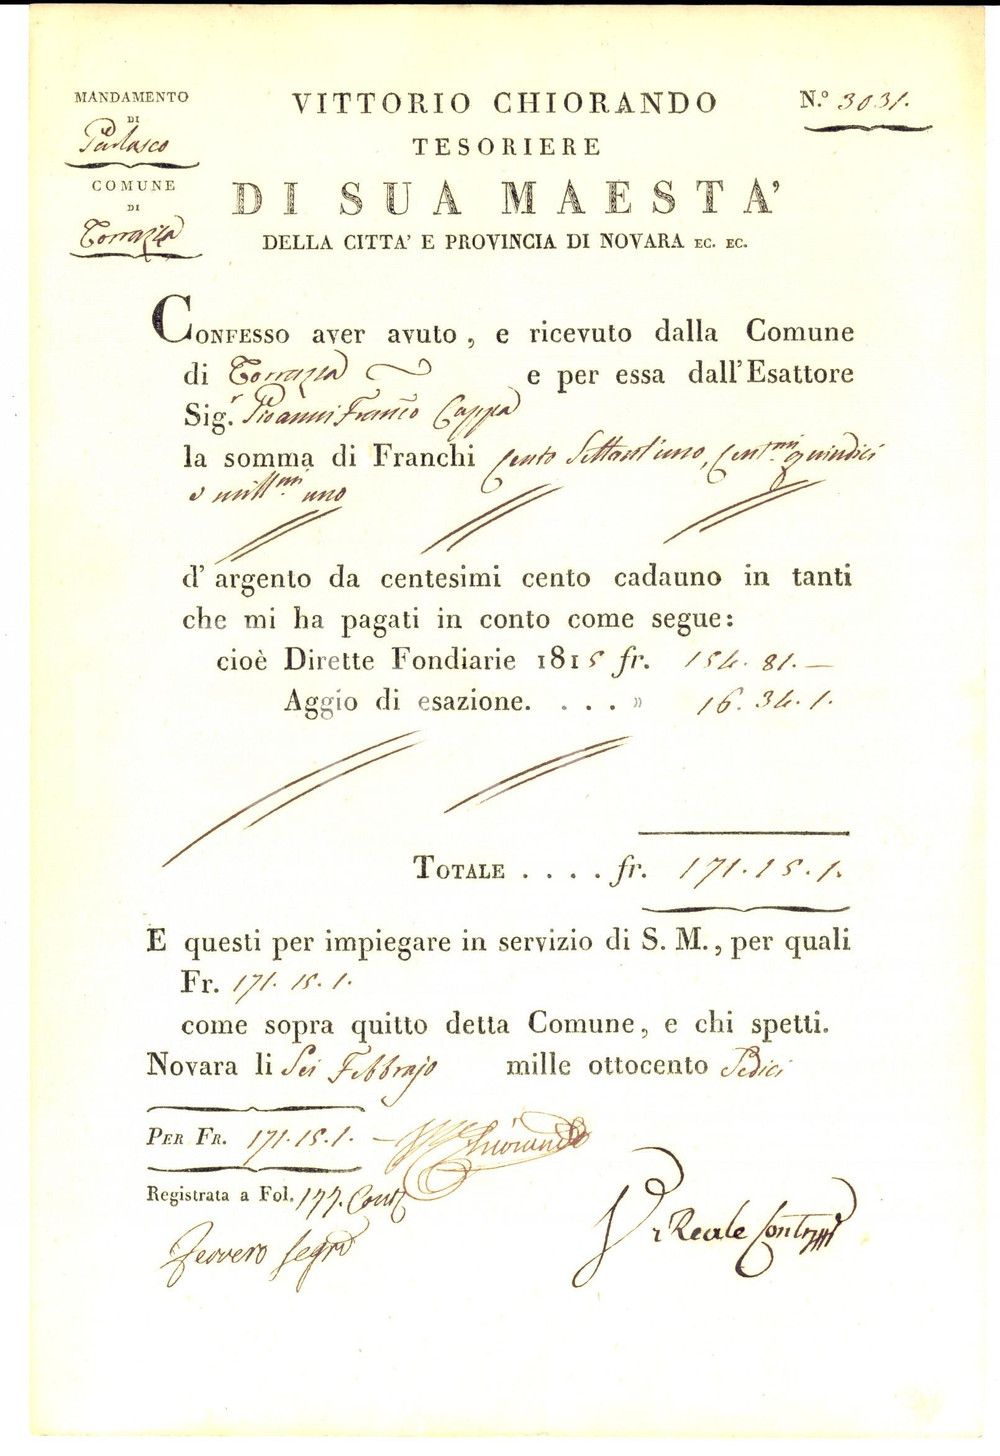 MANDAMENTO
DI
COMUNE
DI
Torrazza
VITTORIO CHIORANDO
TESORIERE
DI SUA MAESTA'
DELLA CITTA' E PROVINCIA DI NOVARA EC. EC.
N.º 3031.
CONFESSO aver avuto, e ricevuto dalla Comune
di Torrazza e per essa dall'Esattore
Sig.r Gioanni Franco Cappa
la somma di Franchi Cento Settant'uno, Cent.mi quindici
e mill.mi uno
d'argento da centesimi cento cadauno in tanti
che mi ha pagati in conto come segue:
cioè Dirette Fondiarie 1815 fr. 154. 81. —
Aggio di esazione. . . . » 16. 34. 1.
TOTALE . . . . fr. 171. 15. 1.
E questi per impiegare in servizio di S. M., per quali
Fr. 171. 15. 1.
come sopra quitto detta Comune, e chi spetti.
Novara li Sei Febbrajo mille ottocento Sedici
PER FR. 171. 15. 1. — Chiorando
Registrata a Fol. 177. Cont.
Reale